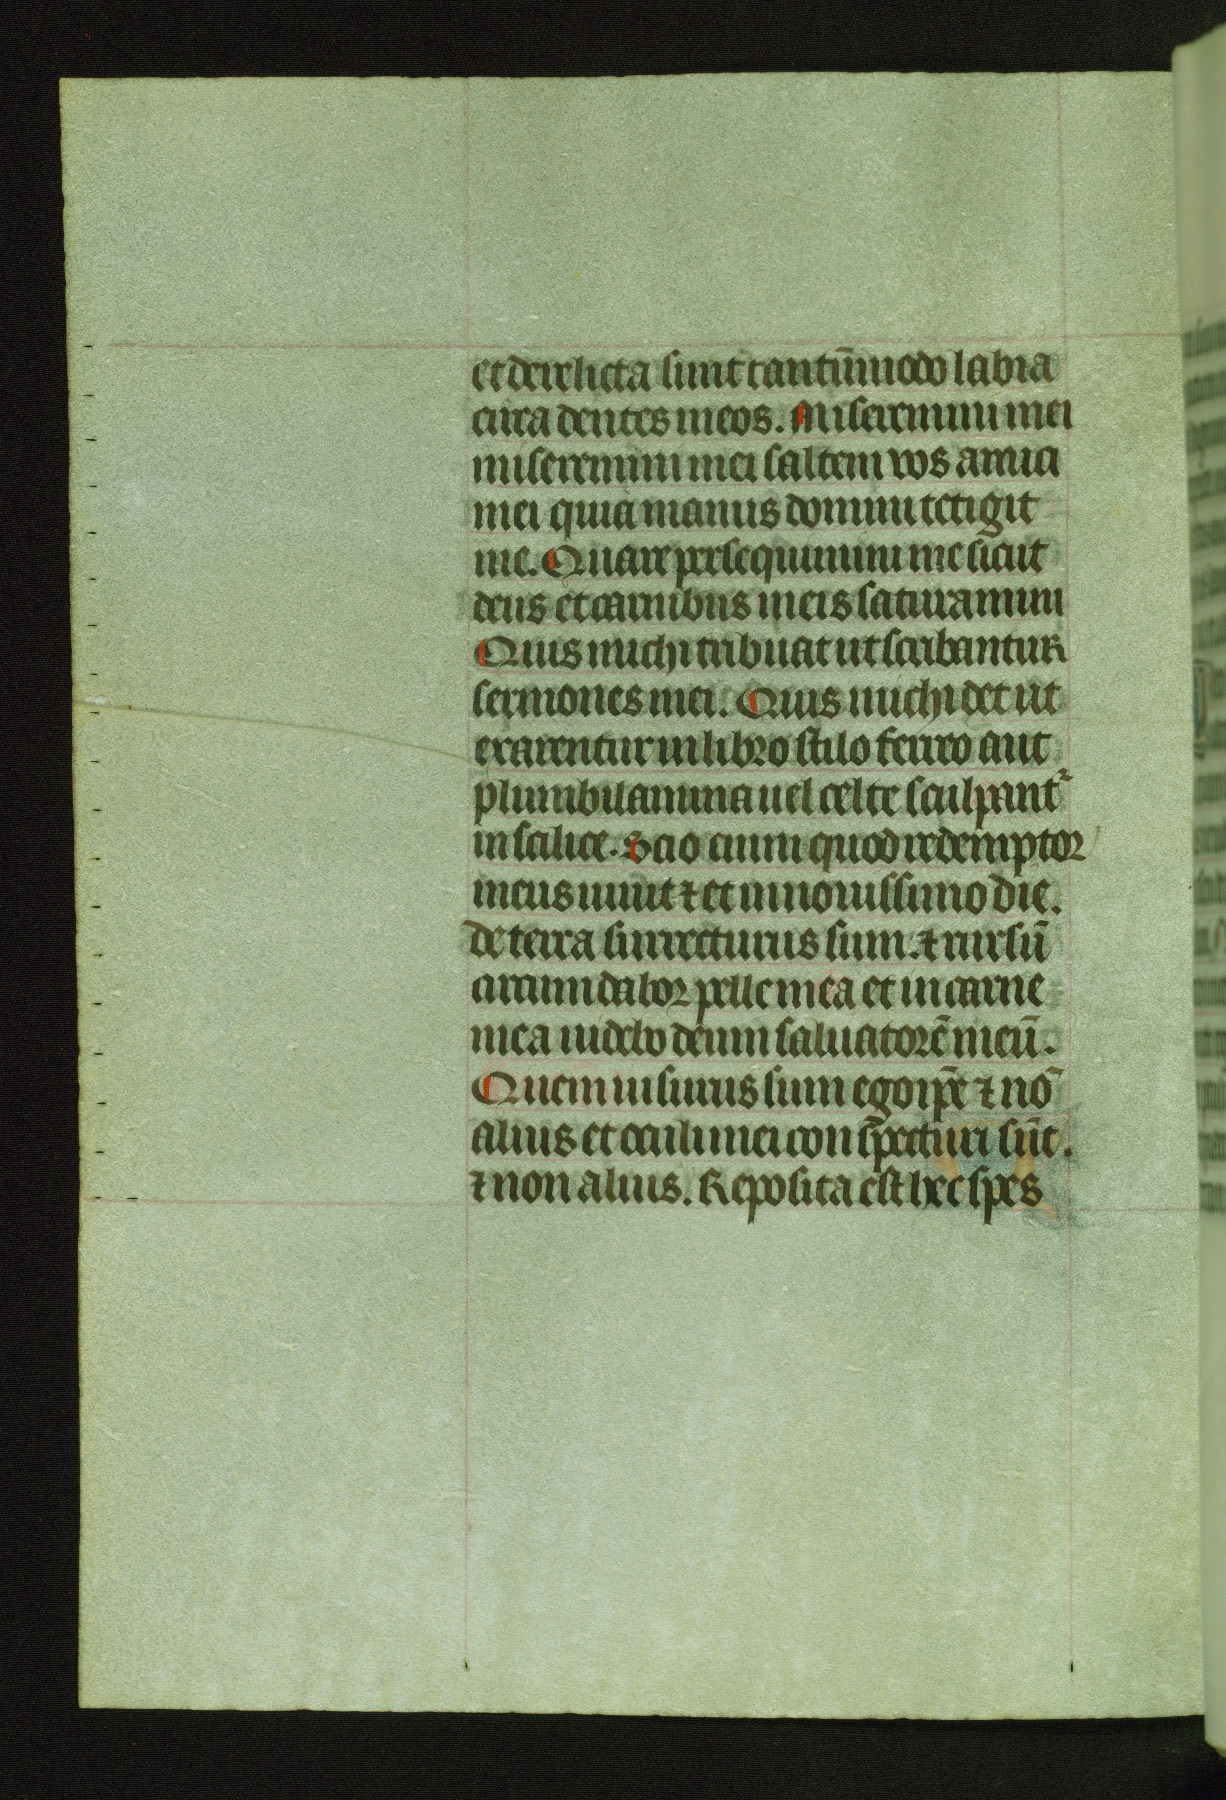 et derelicta sunt tantūmodo labia
circa dentes meos. Miseremini mei
miseremini mei saltem vos amici
mei quia manus domini tetigit
me. Quare persequimini me sicut
deus et carnibus meis saturamini
Quis michi tribuat ut scribantur
sermones mei. Quis michi det ut
exarentur in libro stilo ferreo aut
plumbi lamina uel celte sculpant᷑
in scilice. Scio enim quod redemptor
meus uiuit ⁊ et in nouissimo die.
de terra surrecturus sum. ⁊ rursū
circumdabor pelle mea et in carne
mea uidebo deum saluatorē meū.
Quem uisurus sum ego ip̄e ⁊ nō
alius et oculi mei conspecturi sūt.
⁊ non alius. Reposita est hec spes